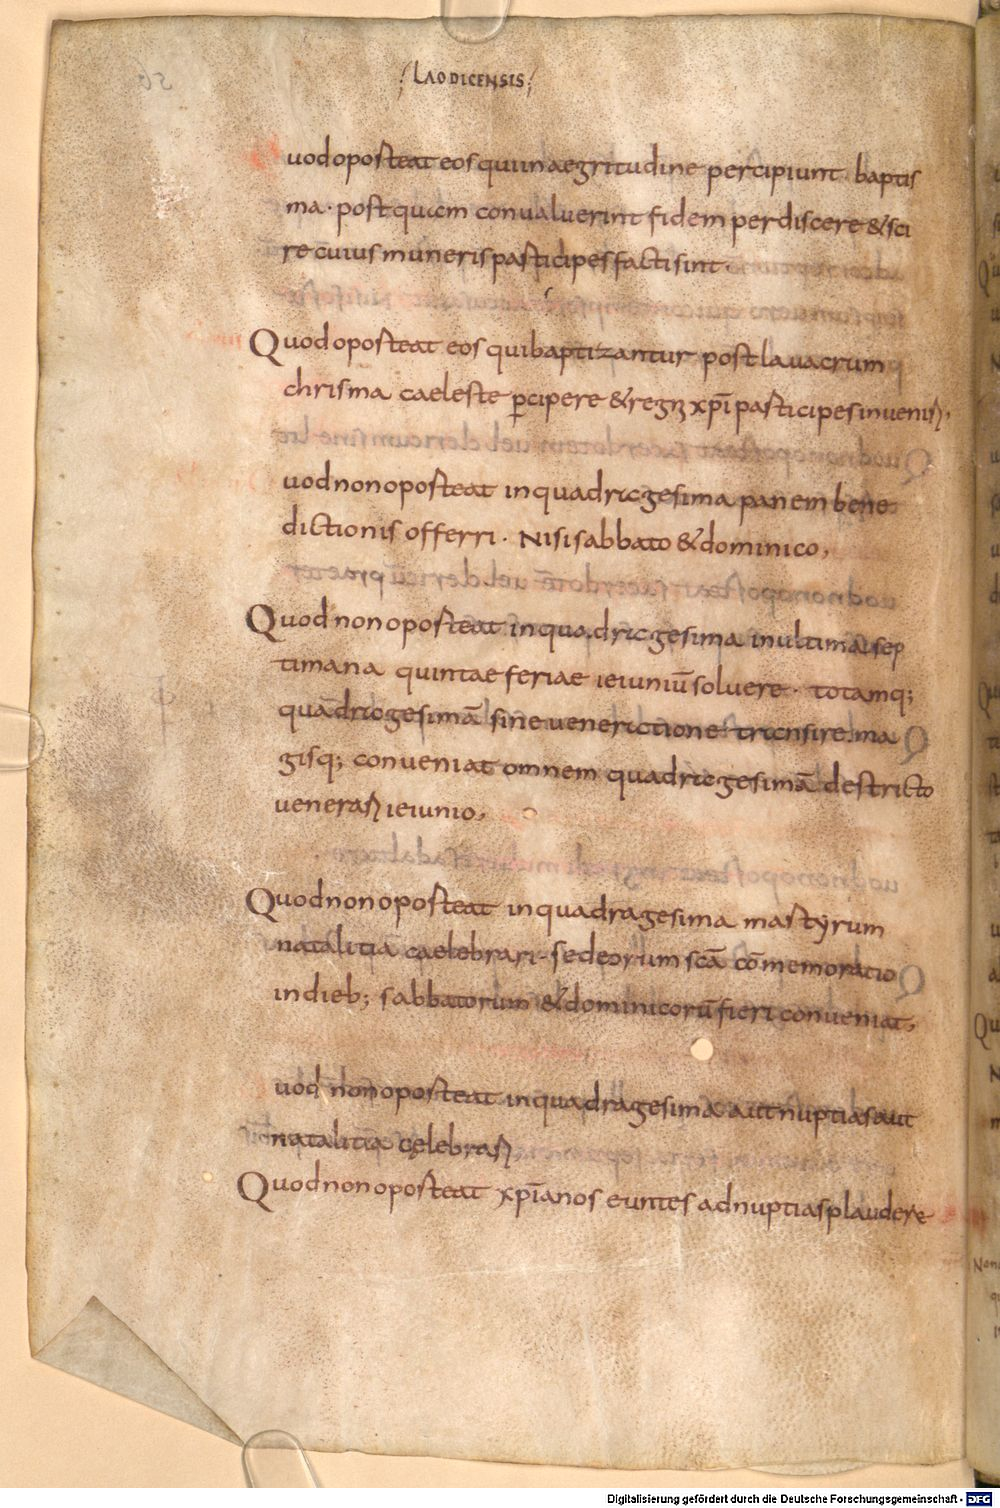 LAODICENSIS
uod oporteat eos qui in aegritudine percipiunt · baptis
ma · post quam conualuerint fidem perdiscere & sci
re cuius muneris participes facti sint ·
Quod oporteat eos qui baptizantur post lauacrum
chrisma caeleste ꝑcipere & regnꝫ xp̄i participes inueniɼ,
uod non oporteat in quadragesima panem bene
dictionis offerri · Nisi sabbato & dominico,
Quod non oporteat in quadragesima in ultima sep
timana quintae feriae ieiuniū soluere · totamq;
quādragesimā sine ueneratione transire · ma
gisq; conueniat omnem quadragesimā destricto
uenerari ieiunio,
Quod non oporteat in quadragesima martyrum
natalitia caelebrari · sed eorum scā cōmemoratio
in dieb; sabbatorum & dominicorū fieri conueniat,
uod non oporteat in quadragesima aut nuptias aut
natalitia cęlebrari
Quod non oporteat xp̄ianos euntes ad nuptias plaudere
Digitalisierung gefördert durch die Deutsche Forschungsgemeinschaft - DFG